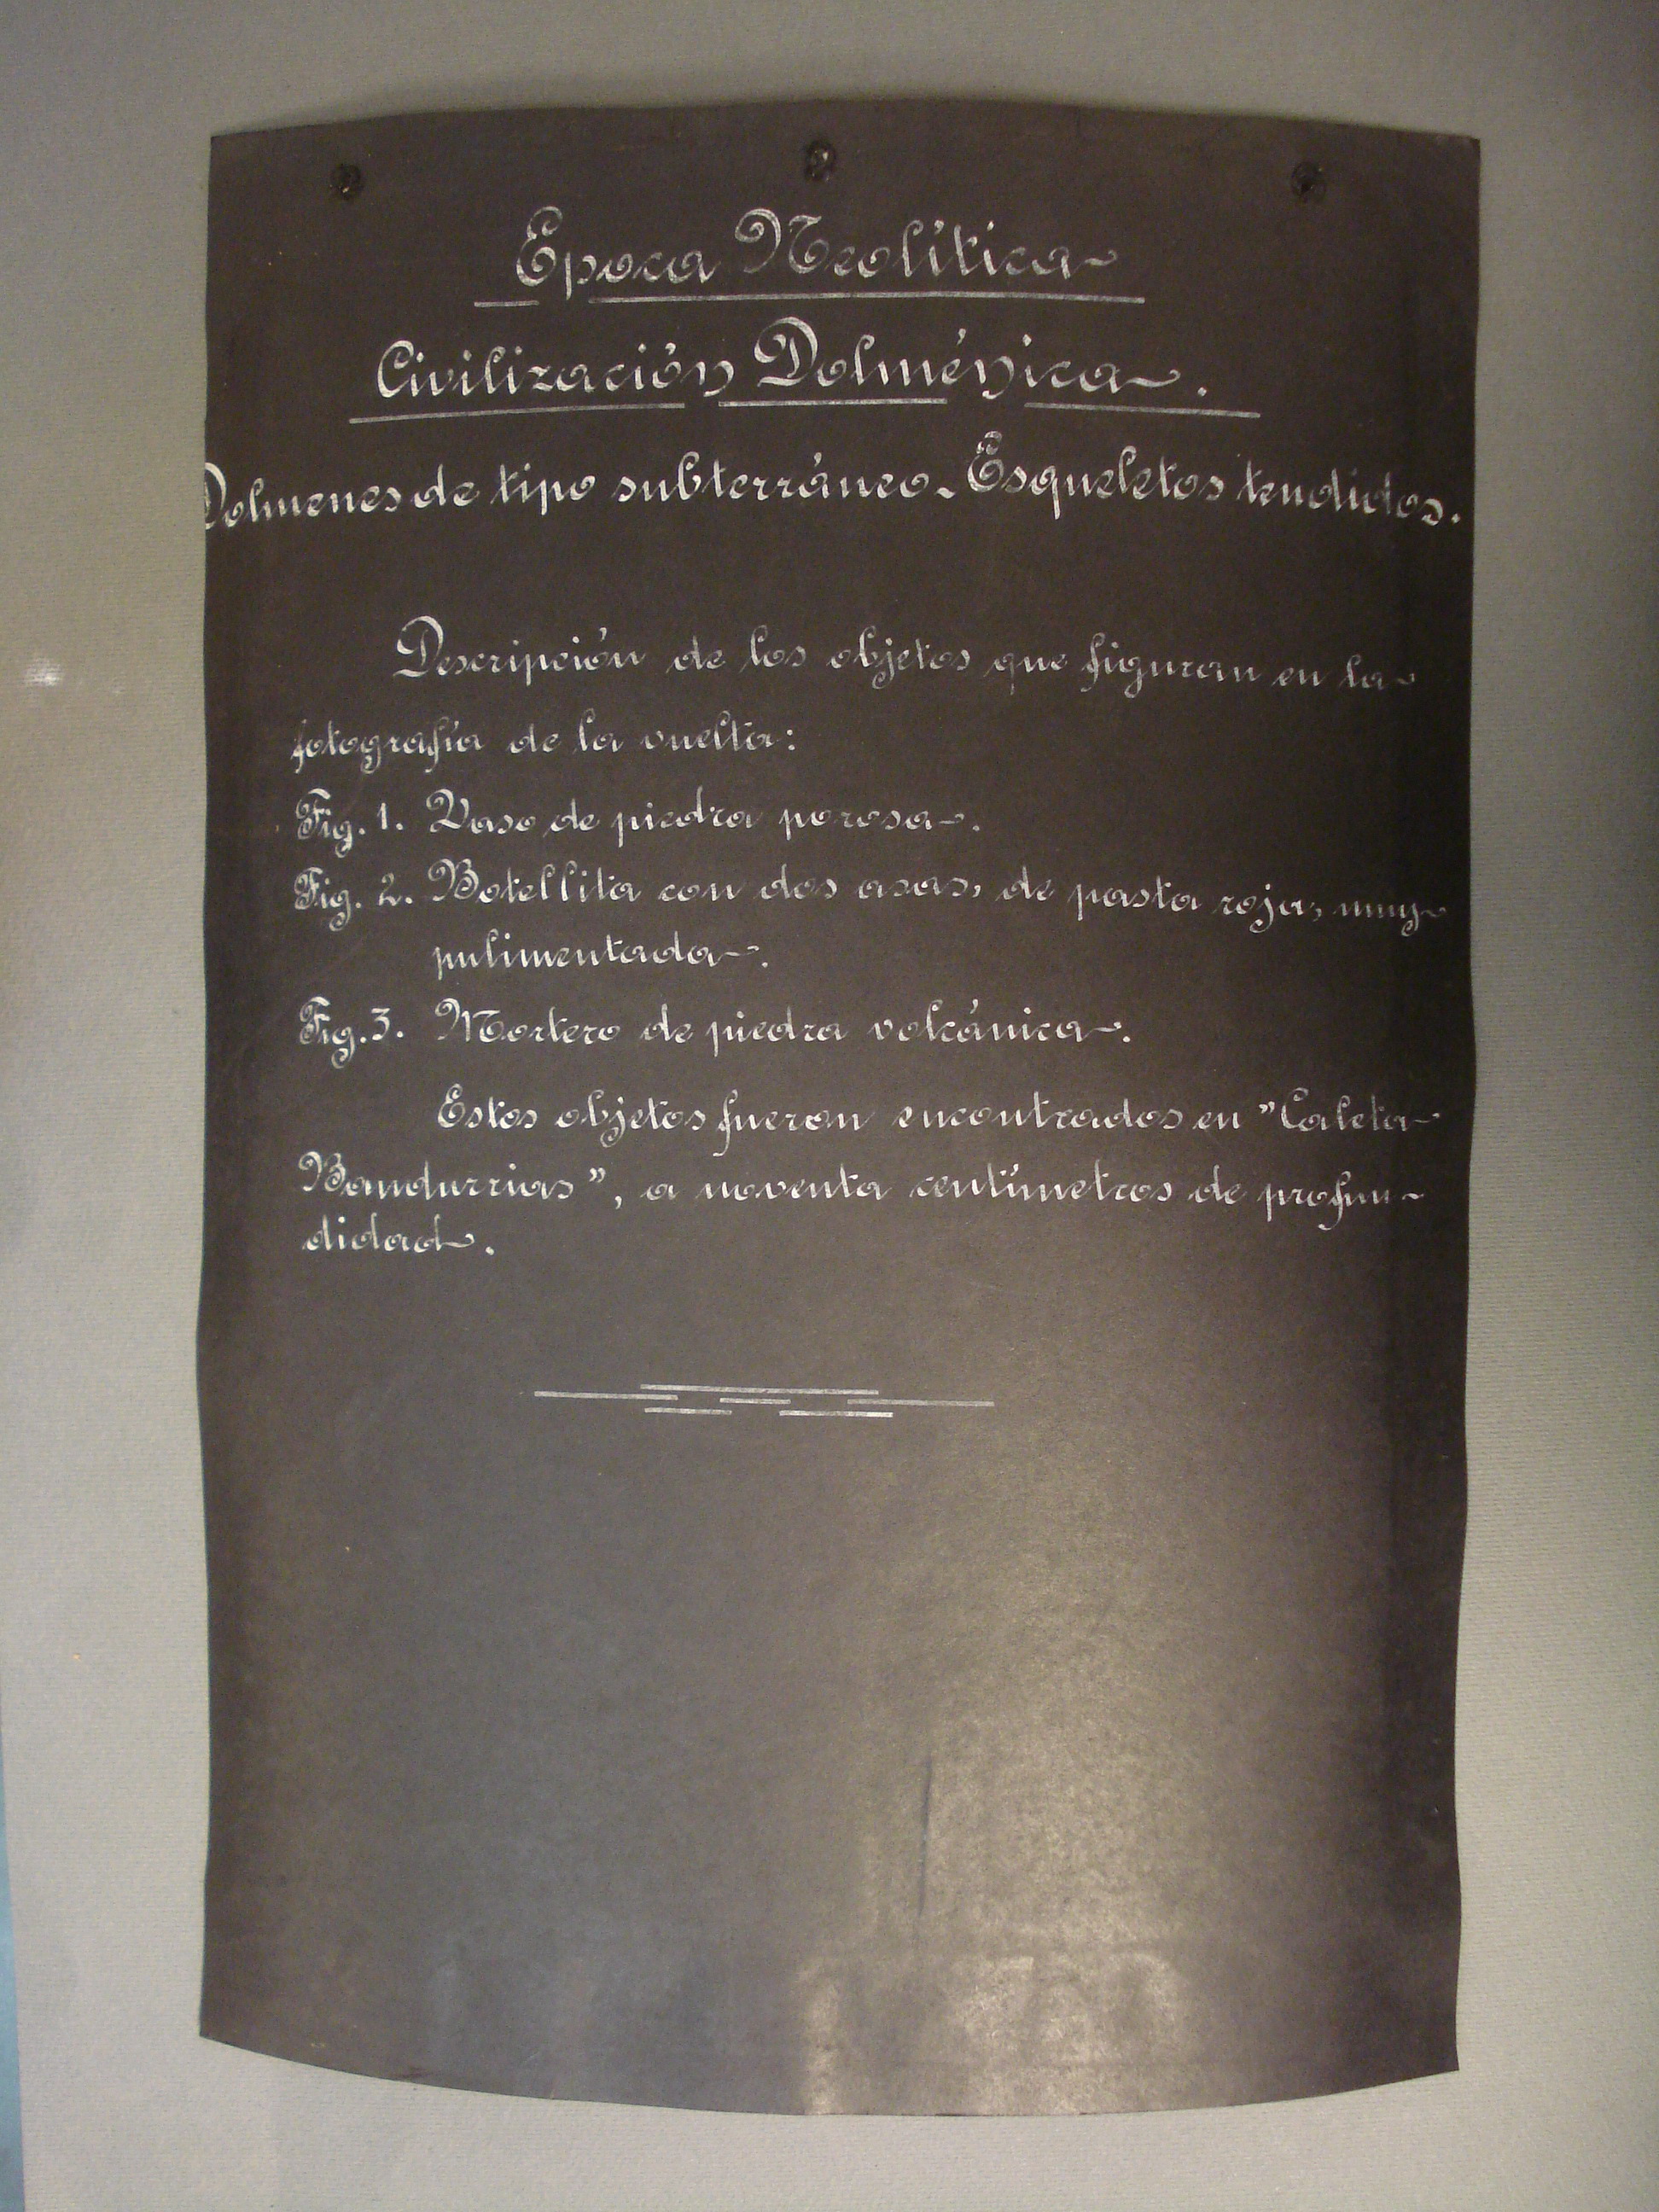 Epoca Neolítica
Civilización Dolménica.
Dolmenes de tipo subterráneo. Esqueletos tendidos.
Descripción de los objetos que figuran en la
fotografía de la vuelta:
Fig. 1. Vaso de piedra porosa.
Fig. 2. Botellita con dos asas, de pasta roja, muy
pulimentada.
Fig. 3. Mortero de piedra volcánica.
Estos objetos fueron encontrados en "Caleta
Bandurrias", a noventa centímetros de profun-
didad.